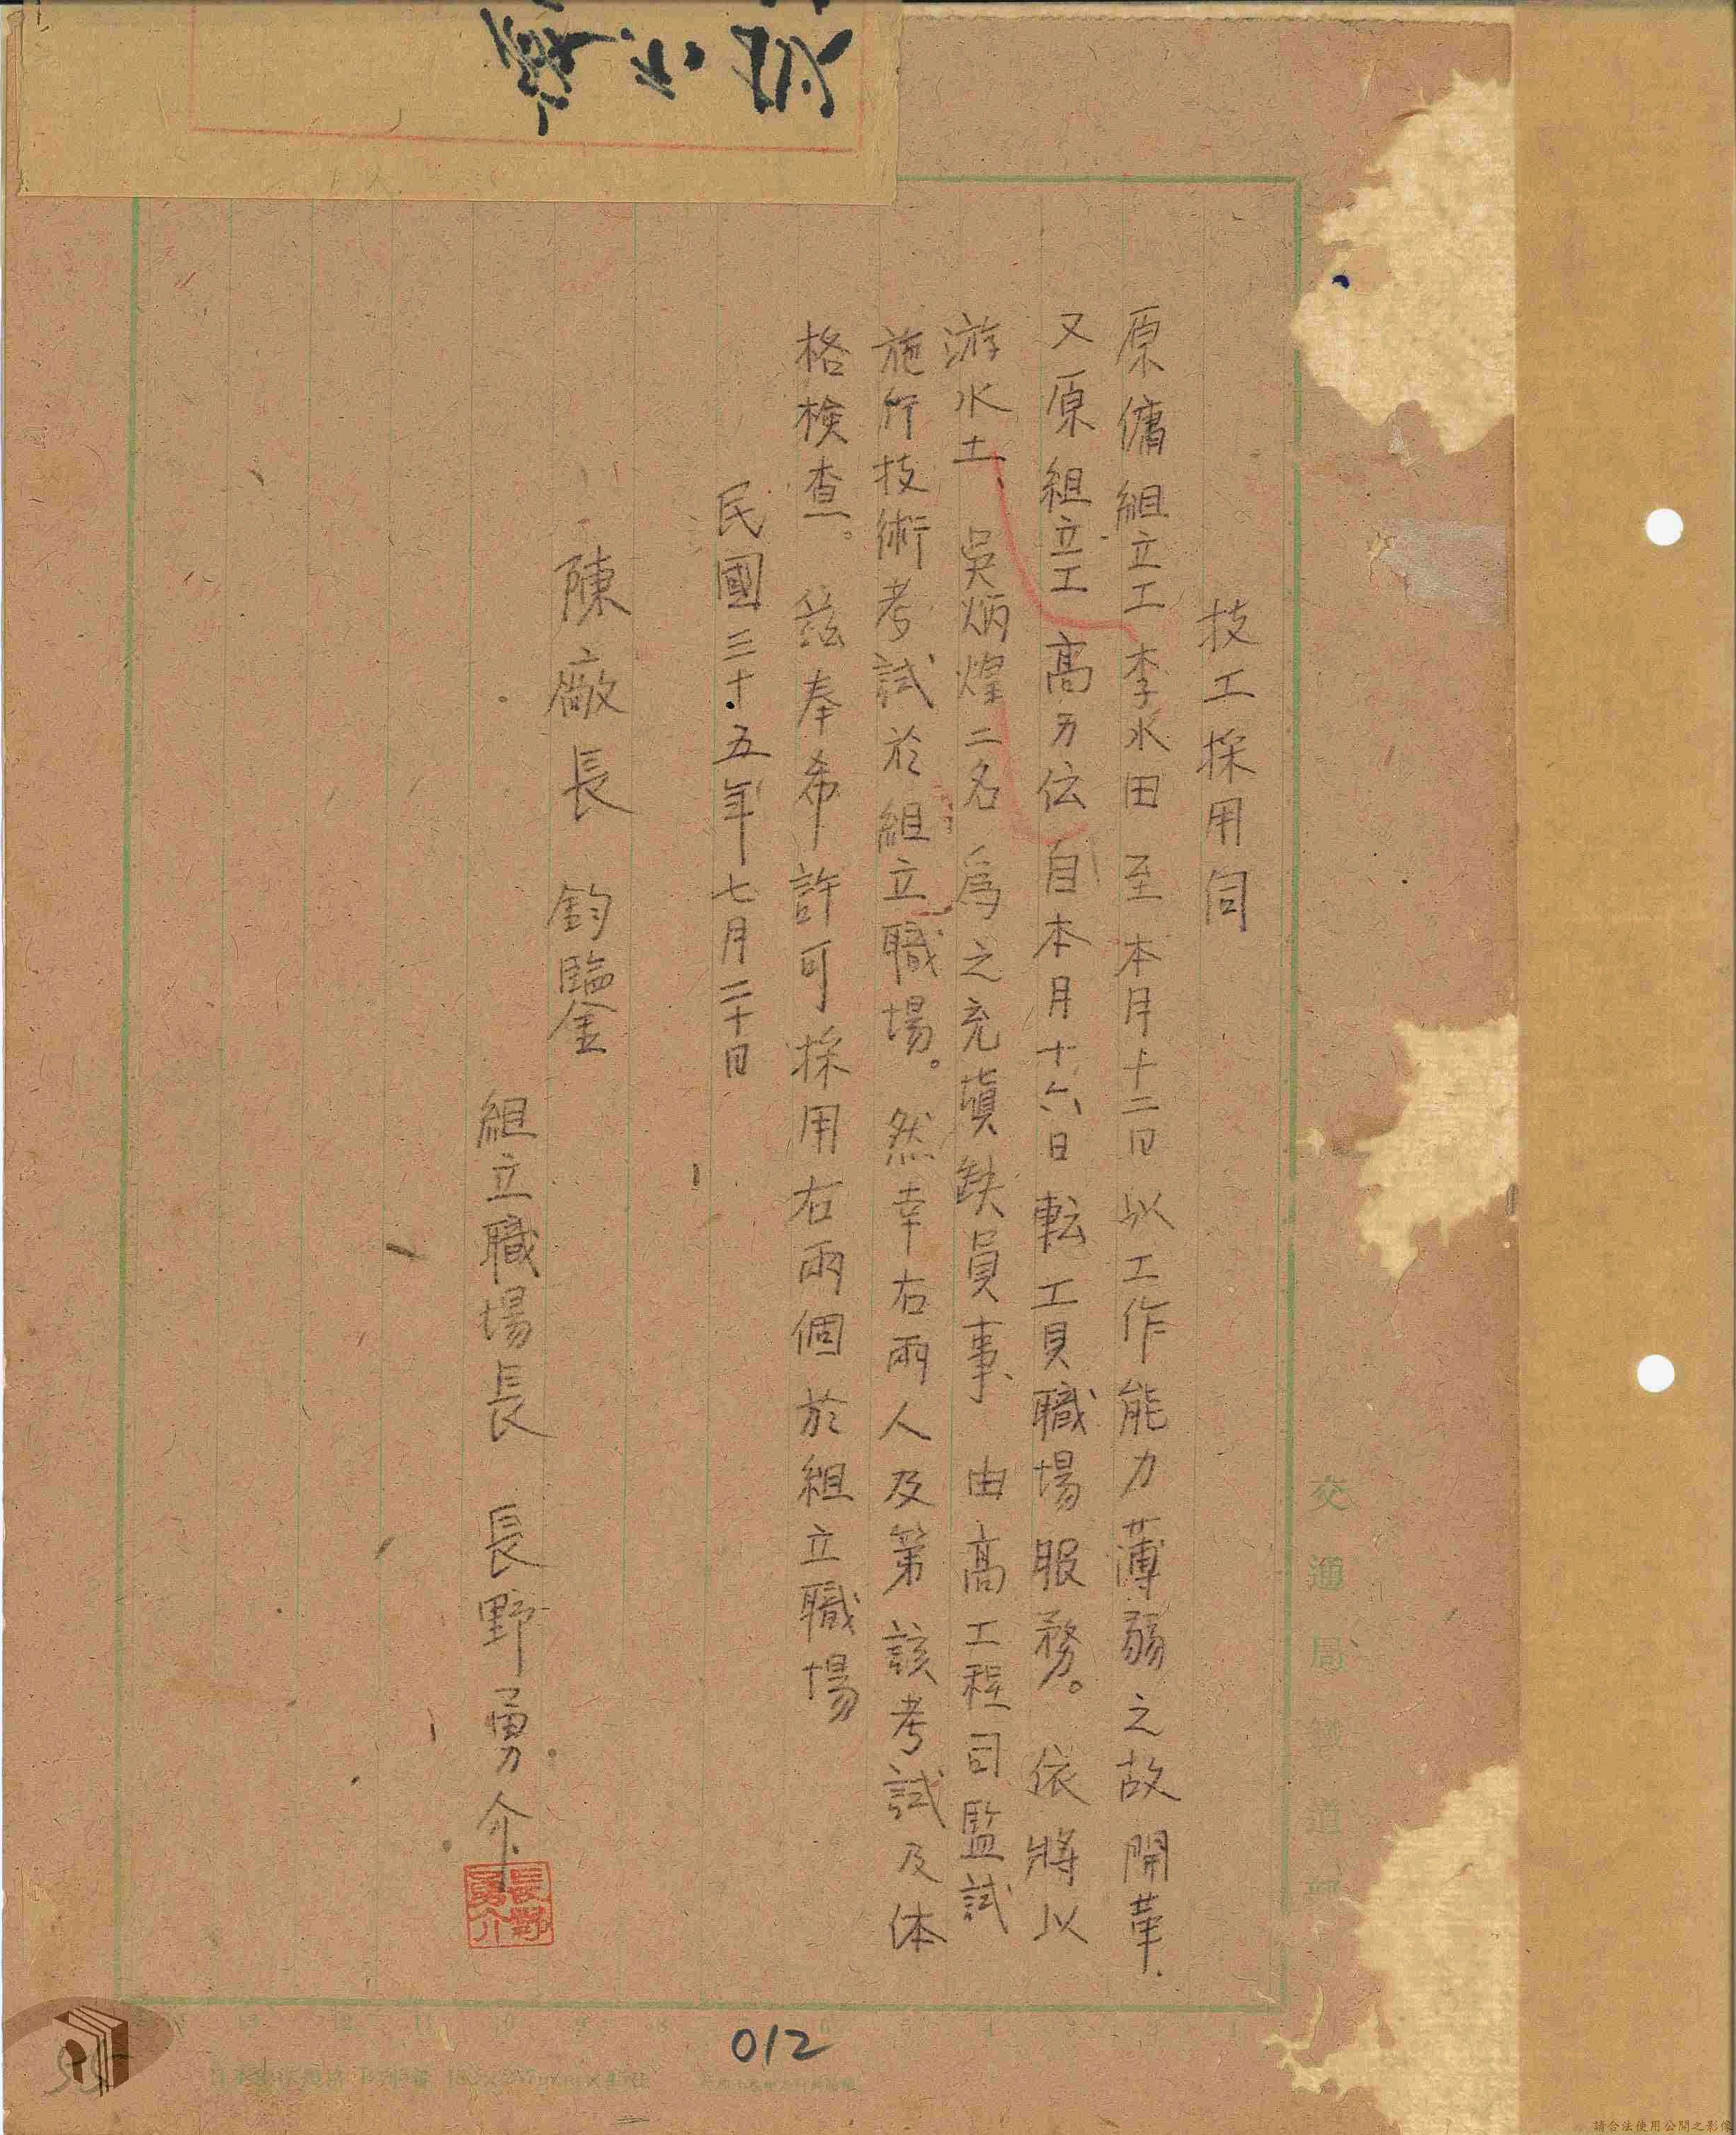 技工採用伺
原傭組立工 李水田 至本月十二日以工作能力薄弱之故開革、
又原組立工 高万伝 自本月十六日転工具職場服務。依將以
游水土、吳炳煌二名為之充填缺員事、由高工程司監試
施行技術考試於組立職場。然幸右兩人及第該考試及体
格検查。茲奉希許可採用右兩個於組立職場
民國三十五年七月二十日
陳廠長 鈞鑒
組立職場長 長野勇介
長野勇介
交通局鐵道
012
請合法使用公開之影像